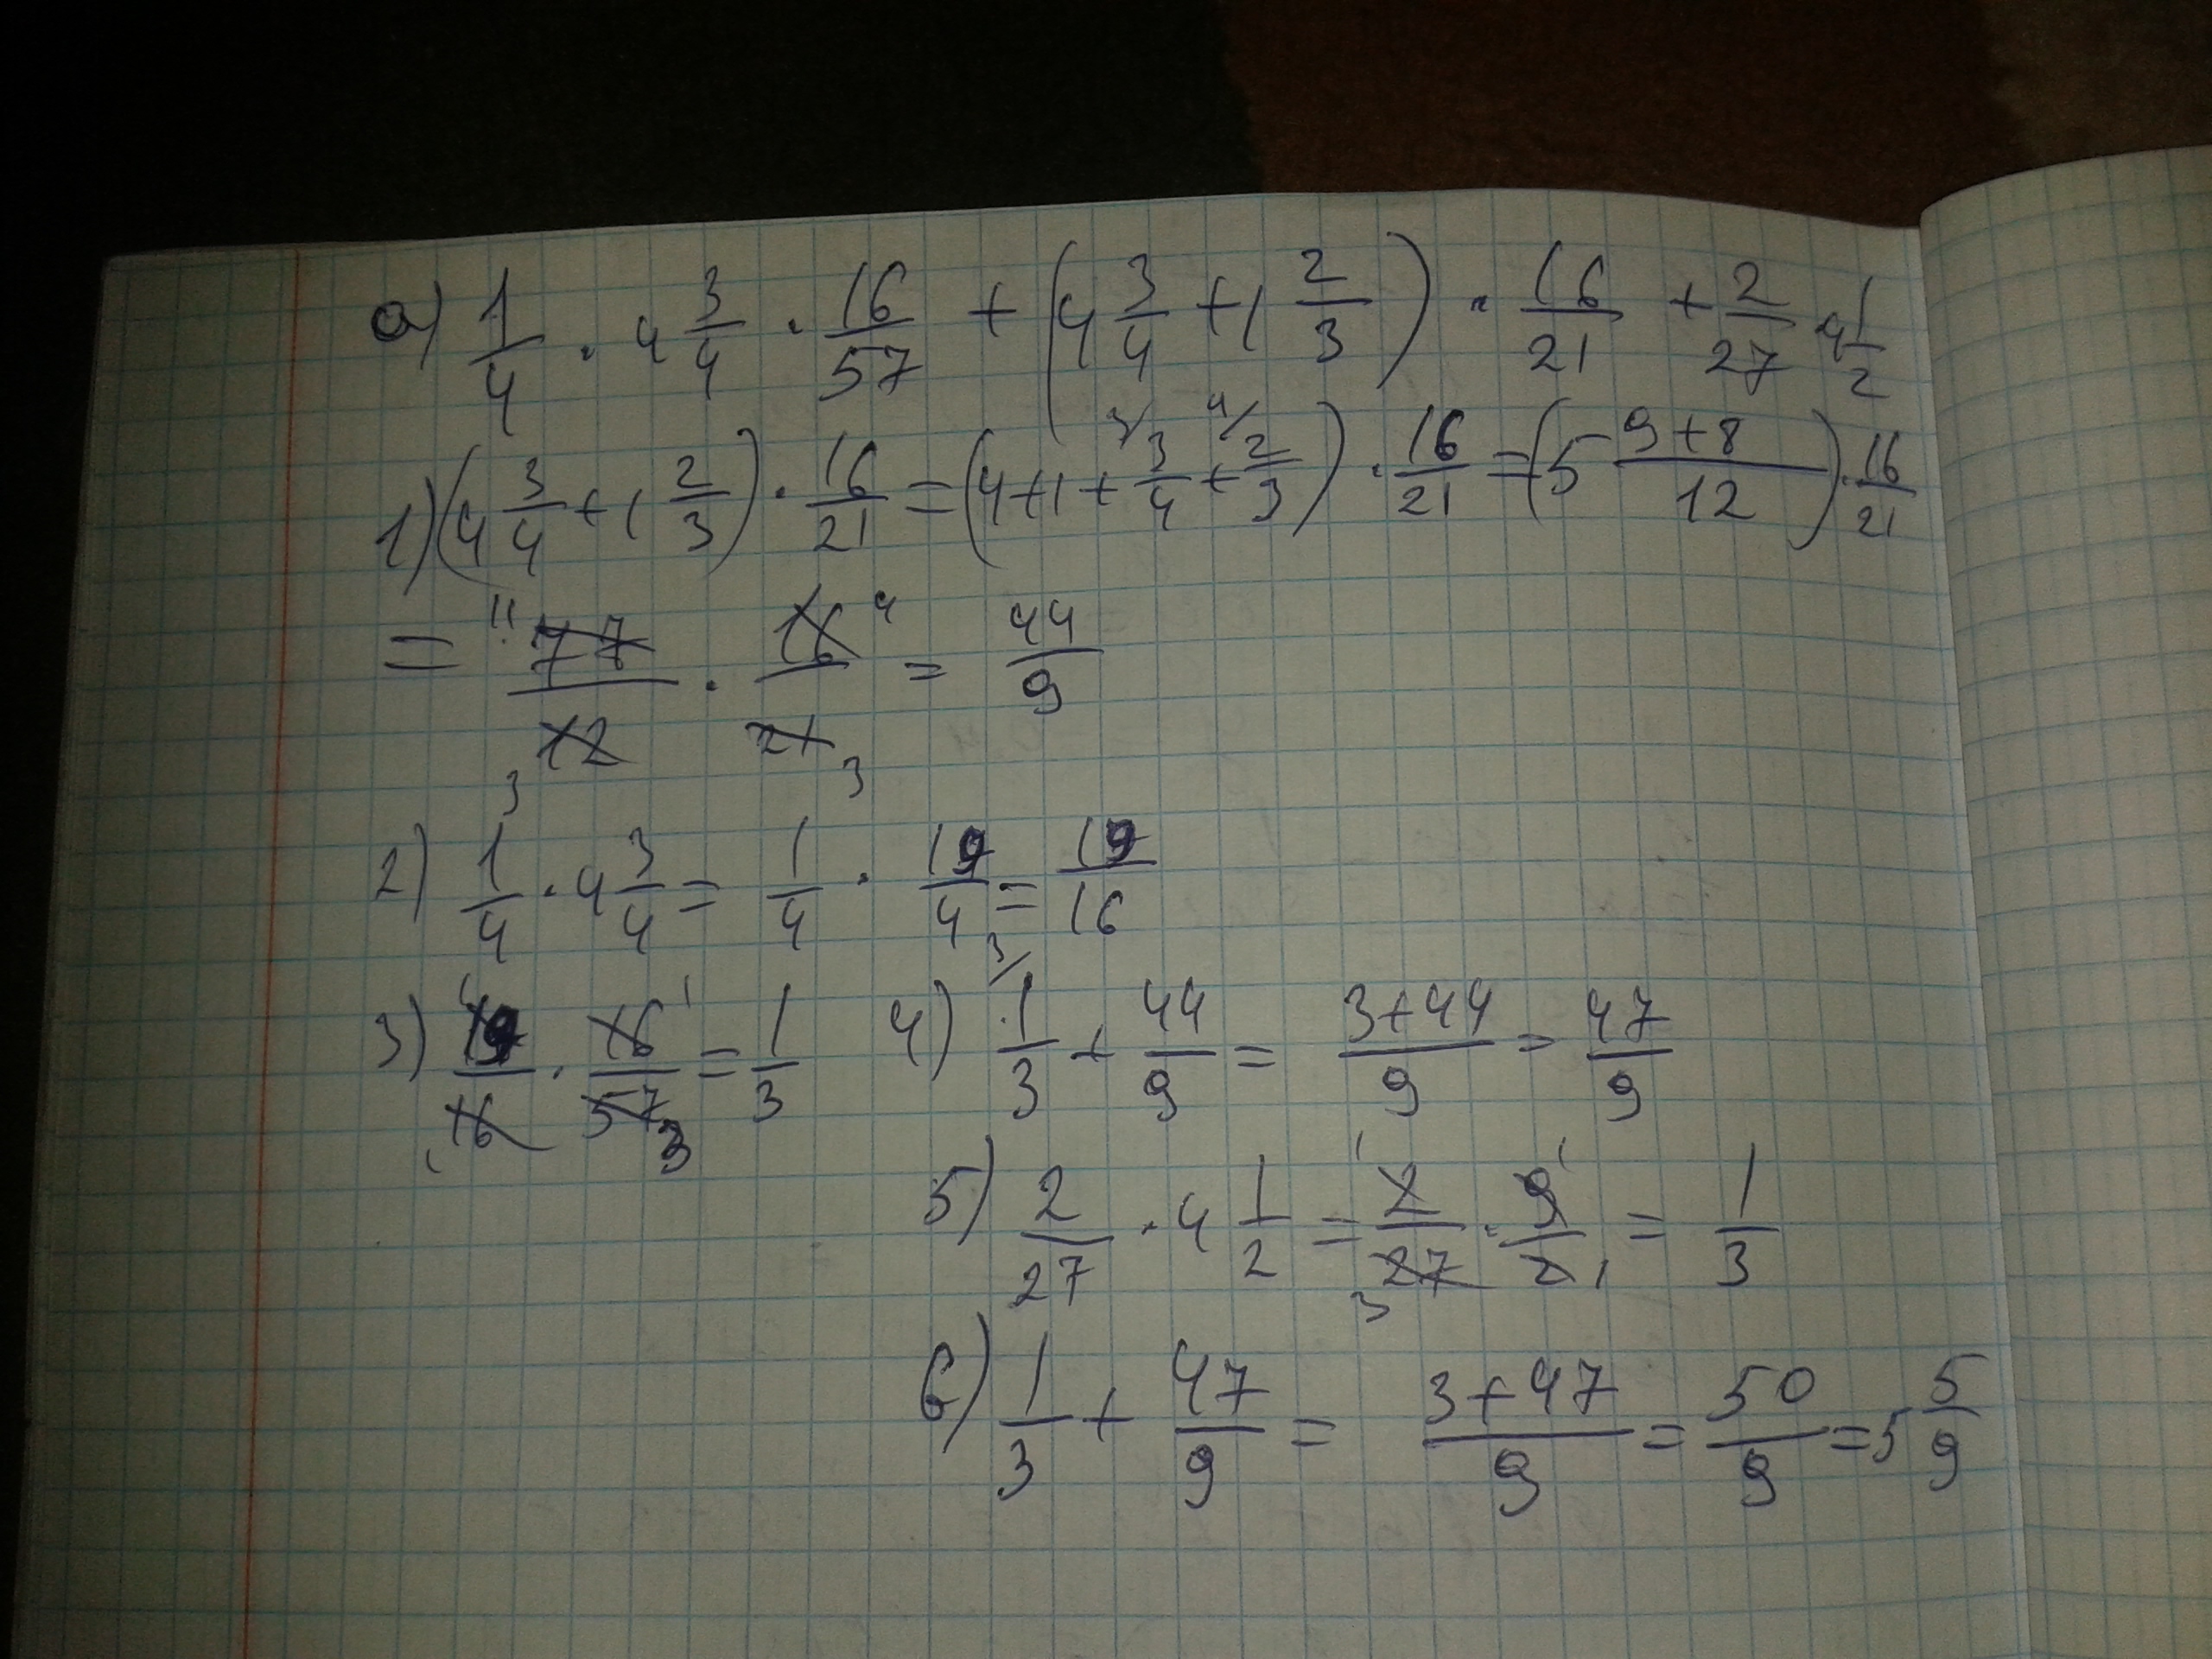 а) 1/4 · 4 3/4 · 16/57 + (4 3/4 + 1 2/3) · 16/21 + 2/27 · 4 1/2
1) (4 3/4 + 1 2/3) · 16/21 = (4+1+ 3/ 3/4 + 4/ 2/3) · 16/21 = (5 (9+8)/12) · 16/21
= 11 77/12 3 · 16 4/21 3 = 44/9
2) 1/4 · 4 3/4 = 1/4 · 19/4 = 19/16
3) 1 19/16 1 · 16 1/57 3 = 1/3 4) 3/ 1/3 + 44/9 = (3+44)/9 = 47/9
5) 2/27 · 4 1/2 = 1 2/27 3 · 9 1/2 1 = 1/3
6) 1/3 + 47/9 = (3+47)/9 = 50/9 = 5 5/9